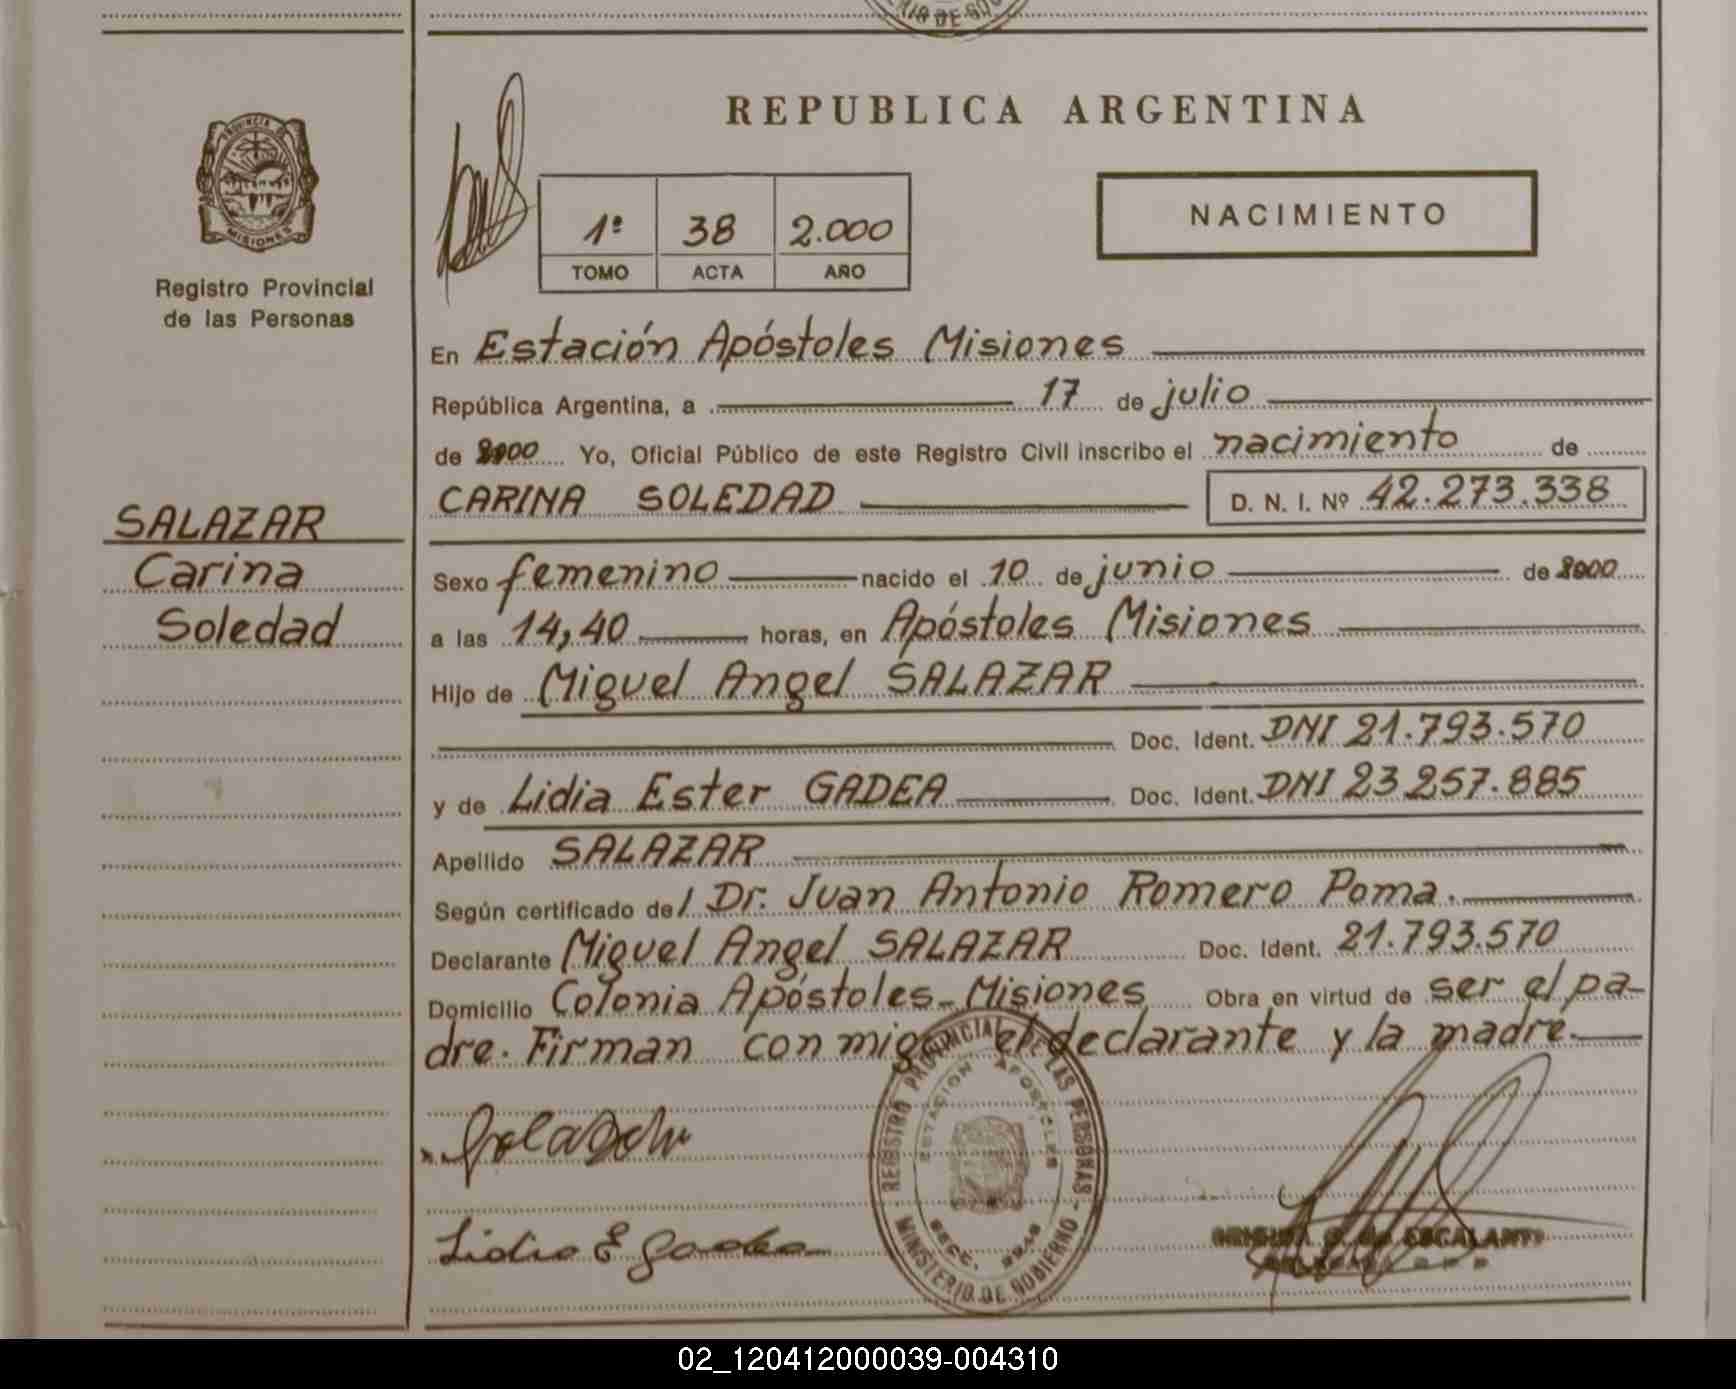 REPUBLICA ARGENTINA
PROVINCIA DE
MISIONES
Registro Provincial
de las Personas
1º 38 2.000
TOMO ACTA AÑO
NACIMIENTO
En Estación Apóstoles Misiones
República Argentina, a 17 de julio
de 2000 Yo, Oficial Público de este Registro Civil inscribo el nacimiento de
CARINA SOLEDAD D. N. I. Nº 42.273.338
SALAZAR
Carina
Soledad
Sexo femenino nacido el 10 de junio de 2000
a las 14,40 horas, en Apóstoles Misiones
Hijo de Miguel Angel SALAZAR
Doc. Ident. DNI 21.793.570
y de Lidia Ester GADEA Doc. Ident. DNI 23257.885
Apellido SALAZAR
Según certificado del Dr. Juan Antonio Romero Poma.
Declarante Miguel Angel SALAZAR Doc. Ident. 21.793.570
Domicilio Colonia Apóstoles-Misiones Obra en virtud de ser el pa-
dre. Firman conmigo el declarante y la madre.
REGISTRO PROVINCIAL DE LAS PERSONAS - MINISTERIO DE GOBIERNO
ESTACION APOSTOLES
SECC.
Lidia E Gadea
ESCALANTE
02_120412000039-004310